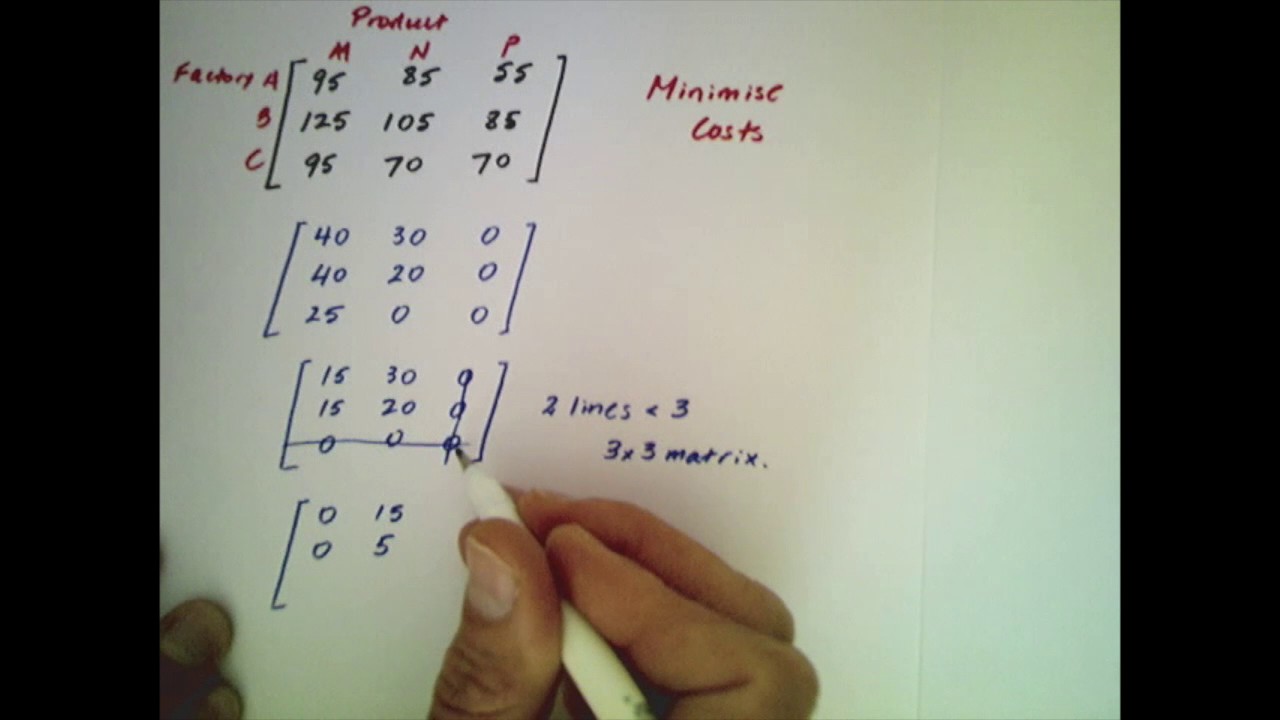 Product
M N P
Factory A 95 85 55
B 125 105 85
C 95 70 70
Minimise
Costs
40 30 0
40 20 0
25 0 0
15 30 0
15 20 0
0 0 0
2 lines < 3
3x3 matrix.
0 15
0 5